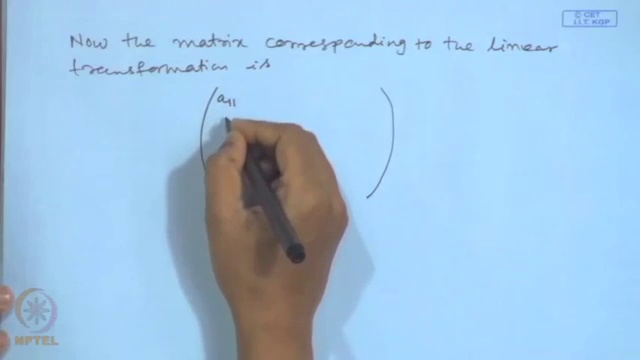 © CET
I.I.T. KGP
Now the matrix corresponding to the linear
transformation is
a11
NPTEL